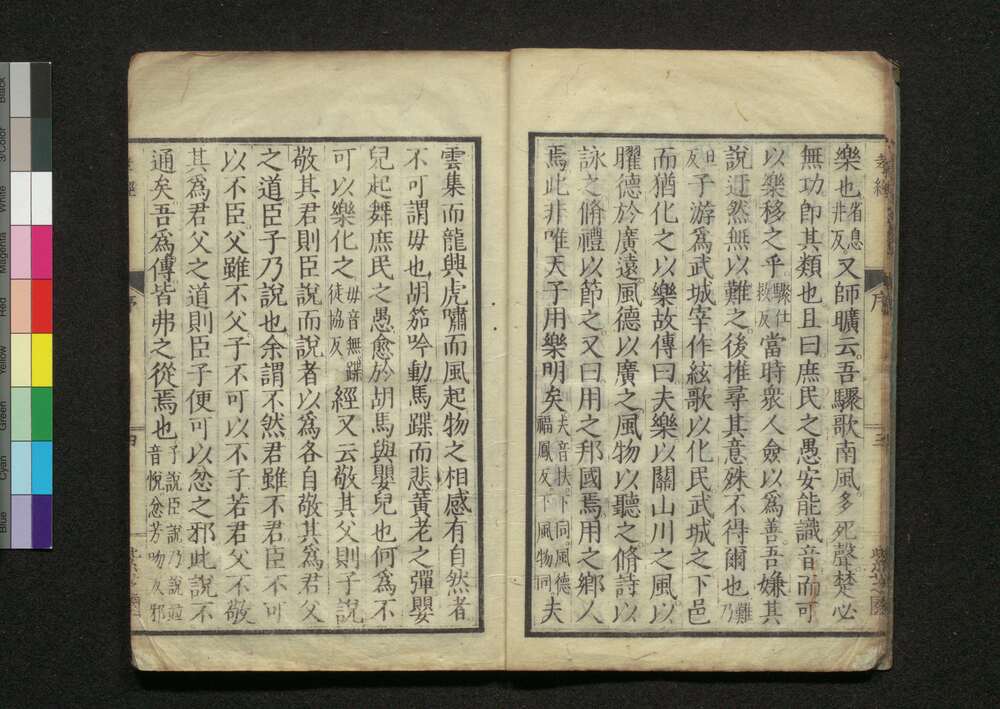 樂也省息井反又師曠云吾驟歌南風多死聲楚必
無功即其類也且曰庶民之愚安能識音而可
以樂移之乎驟仕救反當時衆人僉以爲善吾嫌其
說迂然無以難之後推尋其意殊不得爾也難乃
旦反子游爲武城宰作絃歌以化民武城之下邑
而猶化之以樂故傳曰夫樂以關山川之風以
曜德於廣遠風德以廣之風物以聽之脩詩以
詠之脩禮以節之又曰用之邦國焉用之鄉人
焉此非唯天子用樂明矣夫音扶下同風德福鳳反下風物同夫
孝經
序
三
雲集而龍興虎嘯而風起物之相感有自然者
不可謂毋也胡笳吟動馬蹀而悲黃老之彈嬰
兒起舞庶民之愚愈於胡馬與嬰兒也何爲不
可以樂化之毋音無蹀徒協反經又云敬其父則子說
敬其君則臣說而說者以爲各自敬其爲君父
之道臣子乃說也余謂不然君雖不君臣不可
以不臣父雖不父子不可以不子若君父不敬
其爲君父之道則臣子便可以忿之邪此說不
通矣吾爲傳皆弗之從焉也子說臣說乃說竝音悅忿芳吻反邪
孝經
序
四
Black
3/Color
White
Magenta
Red
Yellow
Green
Cyan
Blue